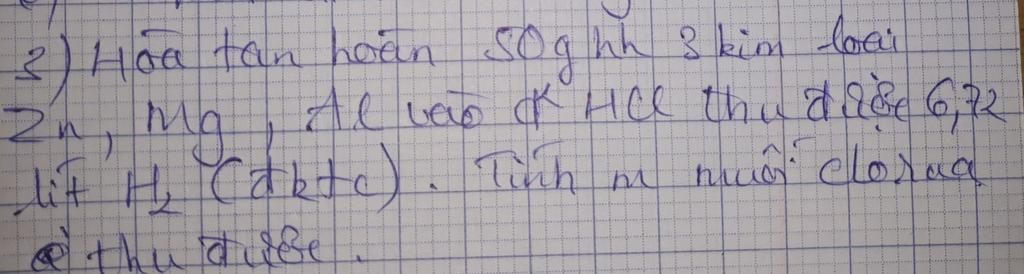 3) Hòa tan hoàn 50g hh 3 kim loại
Zn, Mg, Al vào dd HCl thu được 6,72
lít H₂ (đktc). Tính m muối clorua
thu được.